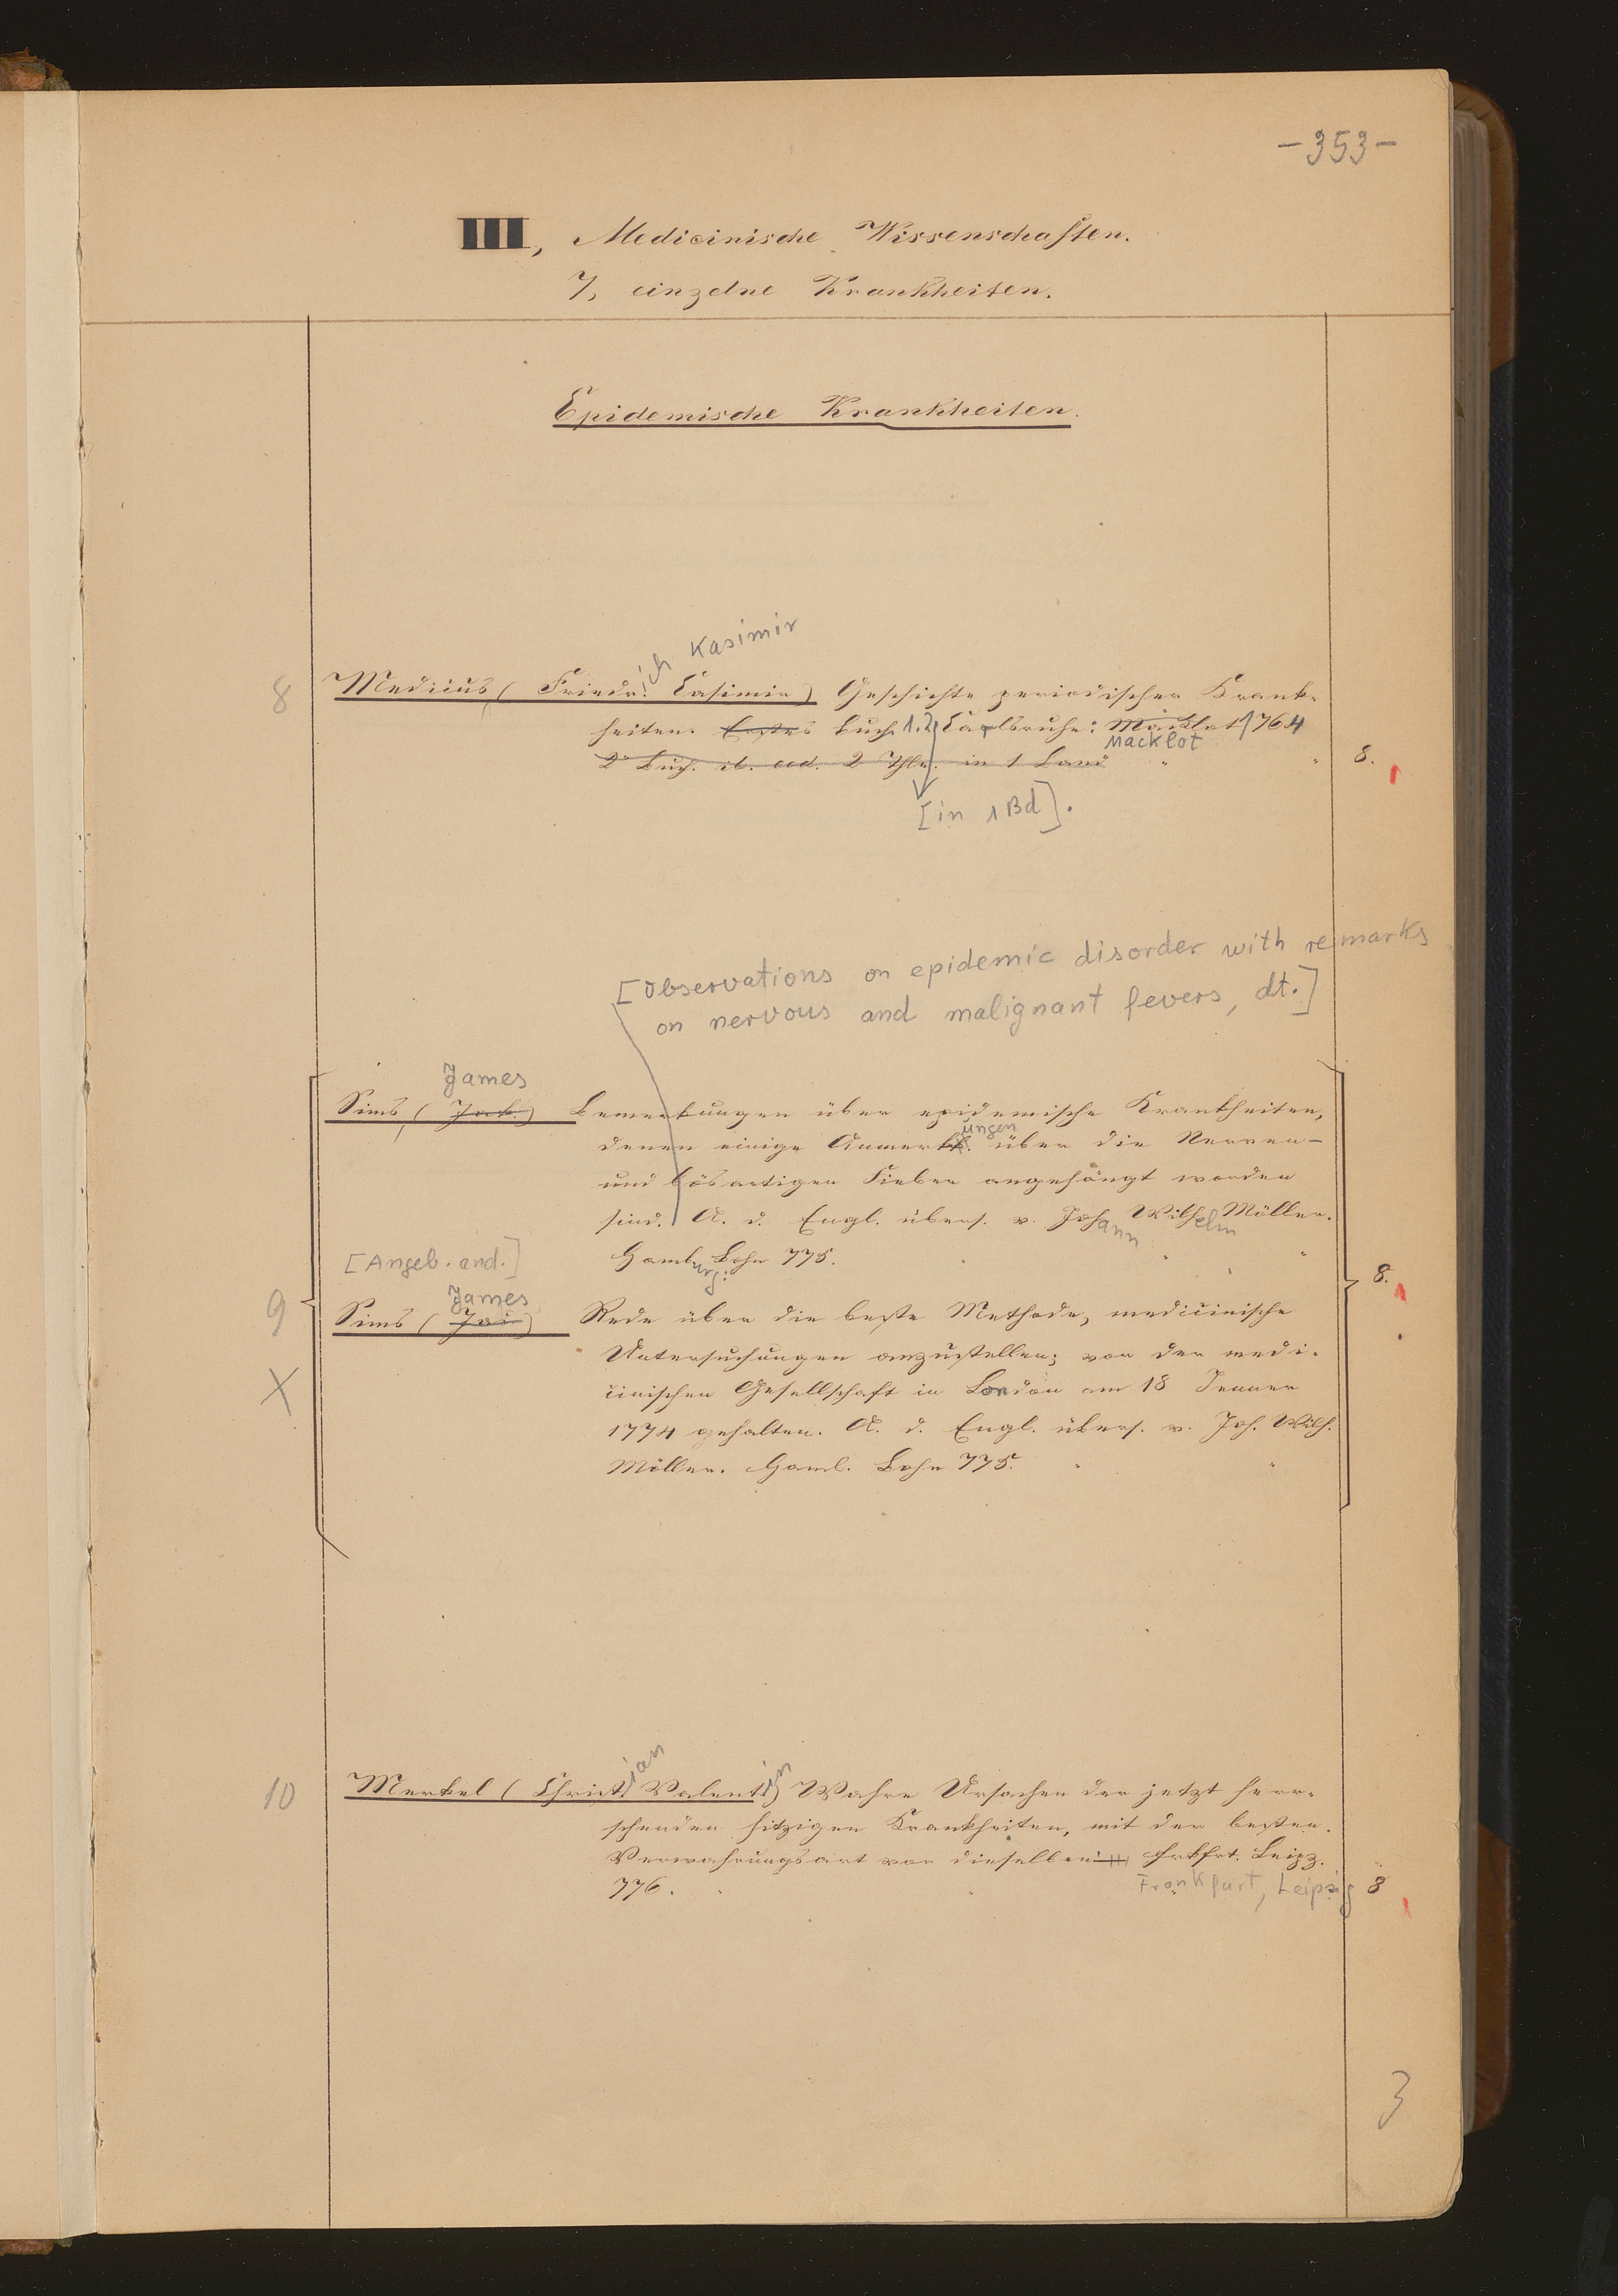 -353-
III, Medicinische Wissenschaften.
7, einzelne Krankheiten.
Epidemische Krankheiten.
ich Kasimir
8 Medicus (Friedr. Casimir) Geschichte periodischer Krank-
heiten. Erstes Buch 1.2. Carlsruhe: Macklot 1764
Macklot
2s Buch. ib. eod. 2 Thle. in 1 Band " " 8.
[in 1 Bd].
[Observations on epidemic disorder with remarks
on nervous and malignant fevers, dt.]
James
Sims (Jak.) Bemerkungen über epidemische Krankheiten,
ungen
denen einige Anmerk. über die Nerven-
und bösartigen Fieber angehängt worden
sind. A. d. Engl. übers. v. Johann Wilhelm Möller.
[Angeb. and.] Hamburg: Bohn 775. " "
8.
James
9 Sims (Jac) Rede über die beste Methode, medicinische
Untersuchungen anzustellen; von der medi-
X cinischen Gesellschaft in London am 18 Jenner
1774 gehalten. A. d. Engl. übers. v. Joh. Wilh.
Möller. Hamb. Bohn 775. " "
10 Merkel (Christian Valentin) Wahre Ursachen der jetzt herr-
schenden hitzigen Krankheiten, mit der besten
Verwahrungsart vor dieselben. Frkfrt. Leipz.
776. Frankfurt, Leipzig 8
3